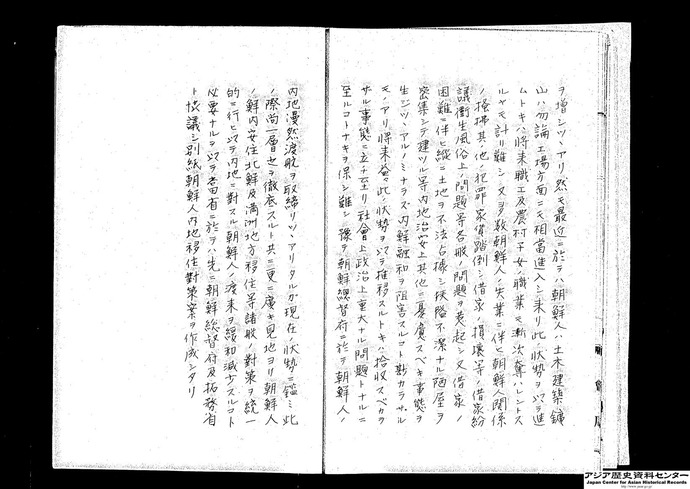 ヲ増シツヽアリ然モ最近ニ於テハ朝鮮人ハ土木建築鑛
山ハ勿論工場方面ニモ相當進入シ来リ此ノ状勢ヲ以テ進
ムトキハ将来職工及農村子女ノ職業モ漸次奪ハレントス
ルヤモ計リ難シ又多数朝鮮人ノ失業ニ伴ヒ朝鮮人関係
ノ其ノ他ノ犯罪家賃踏倒シ借家ノ損壊等ノ借家紛
議衛生風俗上ノ問題等各般ノ問題ヲ惹起シ又借家ノ
困難ニ伴ヒ縦ニ土地ヲ不法占據シ狭隘不潔ナル陋屋ヲ
密集シテ建ツル等内地治安上其他ニ憂慮スベキ事態ヲ
生ジツヽアルノミナラズ内鮮融和ヲ阻害スルコト尠カラザル
モノアリ将来益々此ノ状勢ヲ以テ推移スルトキハ拾収スベカラ
ザル事態ニ立チ至リ社會上政治上重大ナル問題トナルニ
至ルコトナキヲ保シ難シ豫テ朝鮮総督府ニ於テ朝鮮人ノ
内地漫然渡航ヲ取締リツヽアリタルガ現在ノ状勢ニ鑑ミ此
ノ際尚一層之ヲ徹底スルト共ニ更ニ廣キ見地ヨリ朝鮮人
ノ鮮内安住北鮮及満洲地方移住等諸般ノ對策ヲ統一
的ニ行ヒ以テ内地ニ對スル朝鮮人ノ渡来ヲ緩和減少スルコト
必要ナルヲ以テ當省ニ於テハ先ニ朝鮮総督府及拓務省
ト協議シ別紙朝鮮人内地移住對策案ヲ作成シタリ
アジア歴史資料センター
Japan Center for Asian Historical Records